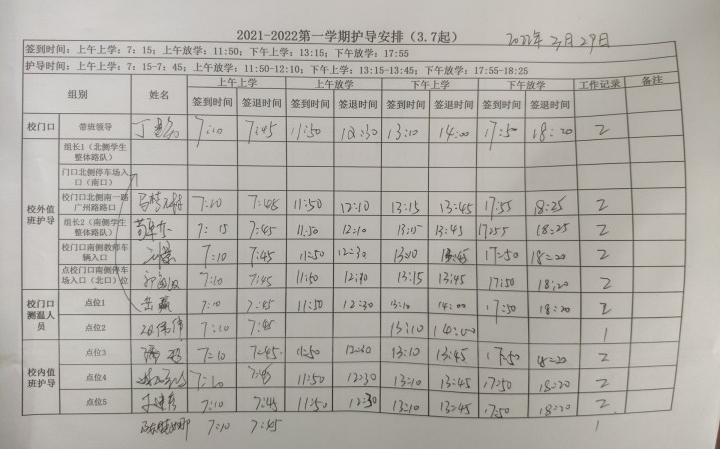 2021-2022第一学期护导安排（3.7起） 2022年3月29日
签到时间：上午上学：7：15；上午放学：11:50；下午上学：13:15；下午放学：17:55
护导时间：上午上学：7：15-7：45；上午放学：11:50-12:10；下午上学：13:15-13:45；下午放学：17:55-18:25
组别 姓名 上午上学 上午放学 下午上学 下午放学 工作记录 备注
签到时间 签退时间 签到时间 签退时间 签到时间 签退时间 签到时间 签退时间
校门口 带班领导 7:10 7:45 11:50 12:30 13:10 14:00 17:50 18:20 2
校外值班护导
组长1（北侧学生整体路队）
门口北侧停车场入口（南口）
校门口北侧南一路广州路路口 7:10 7:45 11:50 12:10 13:15 13:45 17:55 18:25 2
组长2（南侧学生整体路队） 7:15 7:45 11:50 12:10 13:15 13:45 17:55 18:25 2
校门口南侧教师车辆入口 7:10 7:45 11:50 12:30 13:10 13:45 17:50 18:20 2
点校门口南侧停车场入口（北口）位 7:10 7:45 11:50 12:30 13:15 13:45 17:50 18:20 2
校门口测温人员
点位1 7:10 7:45 11:50 12:30 13:10 14:00 17:50 18:20 2
点位2 7:10 7:45 13:10 14:00 1
校内值班护导
点位3 7:10 7:45 11:50 12:30 13:10 13:45 17:50 18:20 2
点位4 7:10 7:45 11:50 12:30 13:10 13:45 17:50 18:20 2
点位5 7:10 7:45 11:50 12:30 13:10 13:45 17:50 18:20 2
7:10 7:45 1